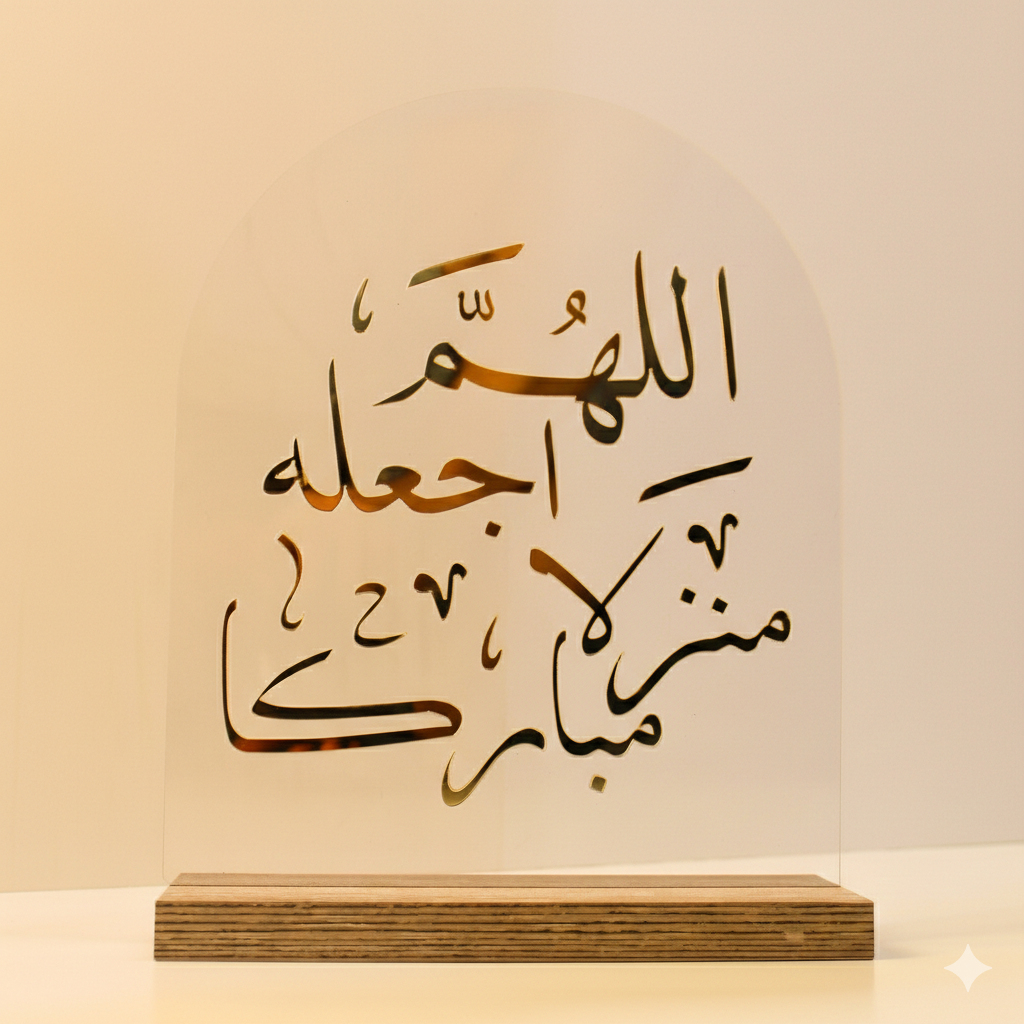 اللهُمَّ
اجعله
منزلا
مباركا